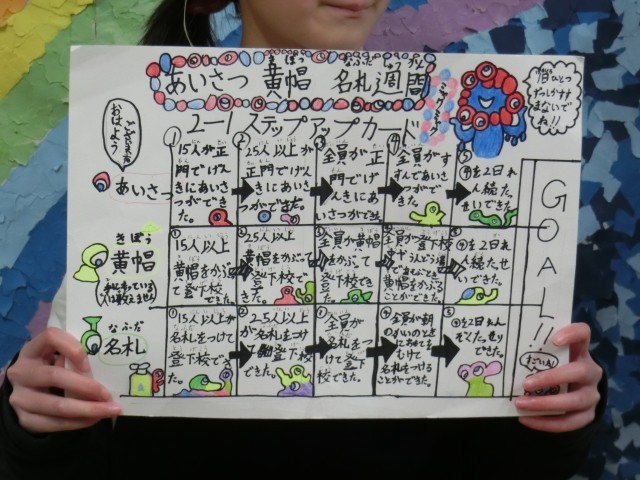 きぼう なふだ しゅうかん
あいさつ 黄帽 名札 週間
2-1 ステップアップカード
ミャクミャク
はないで
ね!!
おはよう
ございます
GOAL!!
すごいね
あいさつ
①
15人が正
門でげん
きにあいさ
つができ
た。
②
25人以上が
正門でげん
きにあいさ
つができた。
③
全員が正
門でげ
んきにあ
いさつができた
④
全員がす
すんであい
さつがで
きた。
⑤
④を2日れ
ん続た
せいできた
きぼう
黄帽
①
15人以上
黄帽をかぶっ
て登下校
できた。
②
25人以上
黄帽をかぶっ
て登下校で
できた。
③
全員が黄帽
をかぶって
登下校
できた。
④
全員が登下校
黄帽をかぶる
ことができた。
⑤
④を2日れ
ん続たっせい
できた
なふだ
名札
①
15人以上が
名札をつけて
登下校でき
た。
②
25人以上
が名札をつけ
て登下校
できた。
③
全員が
名札をつ
けて登下
校できた。
④
全員が朝
の
名札をつける
ことができた。
⑤
④を2日れん
ぞくたっせい
できた。